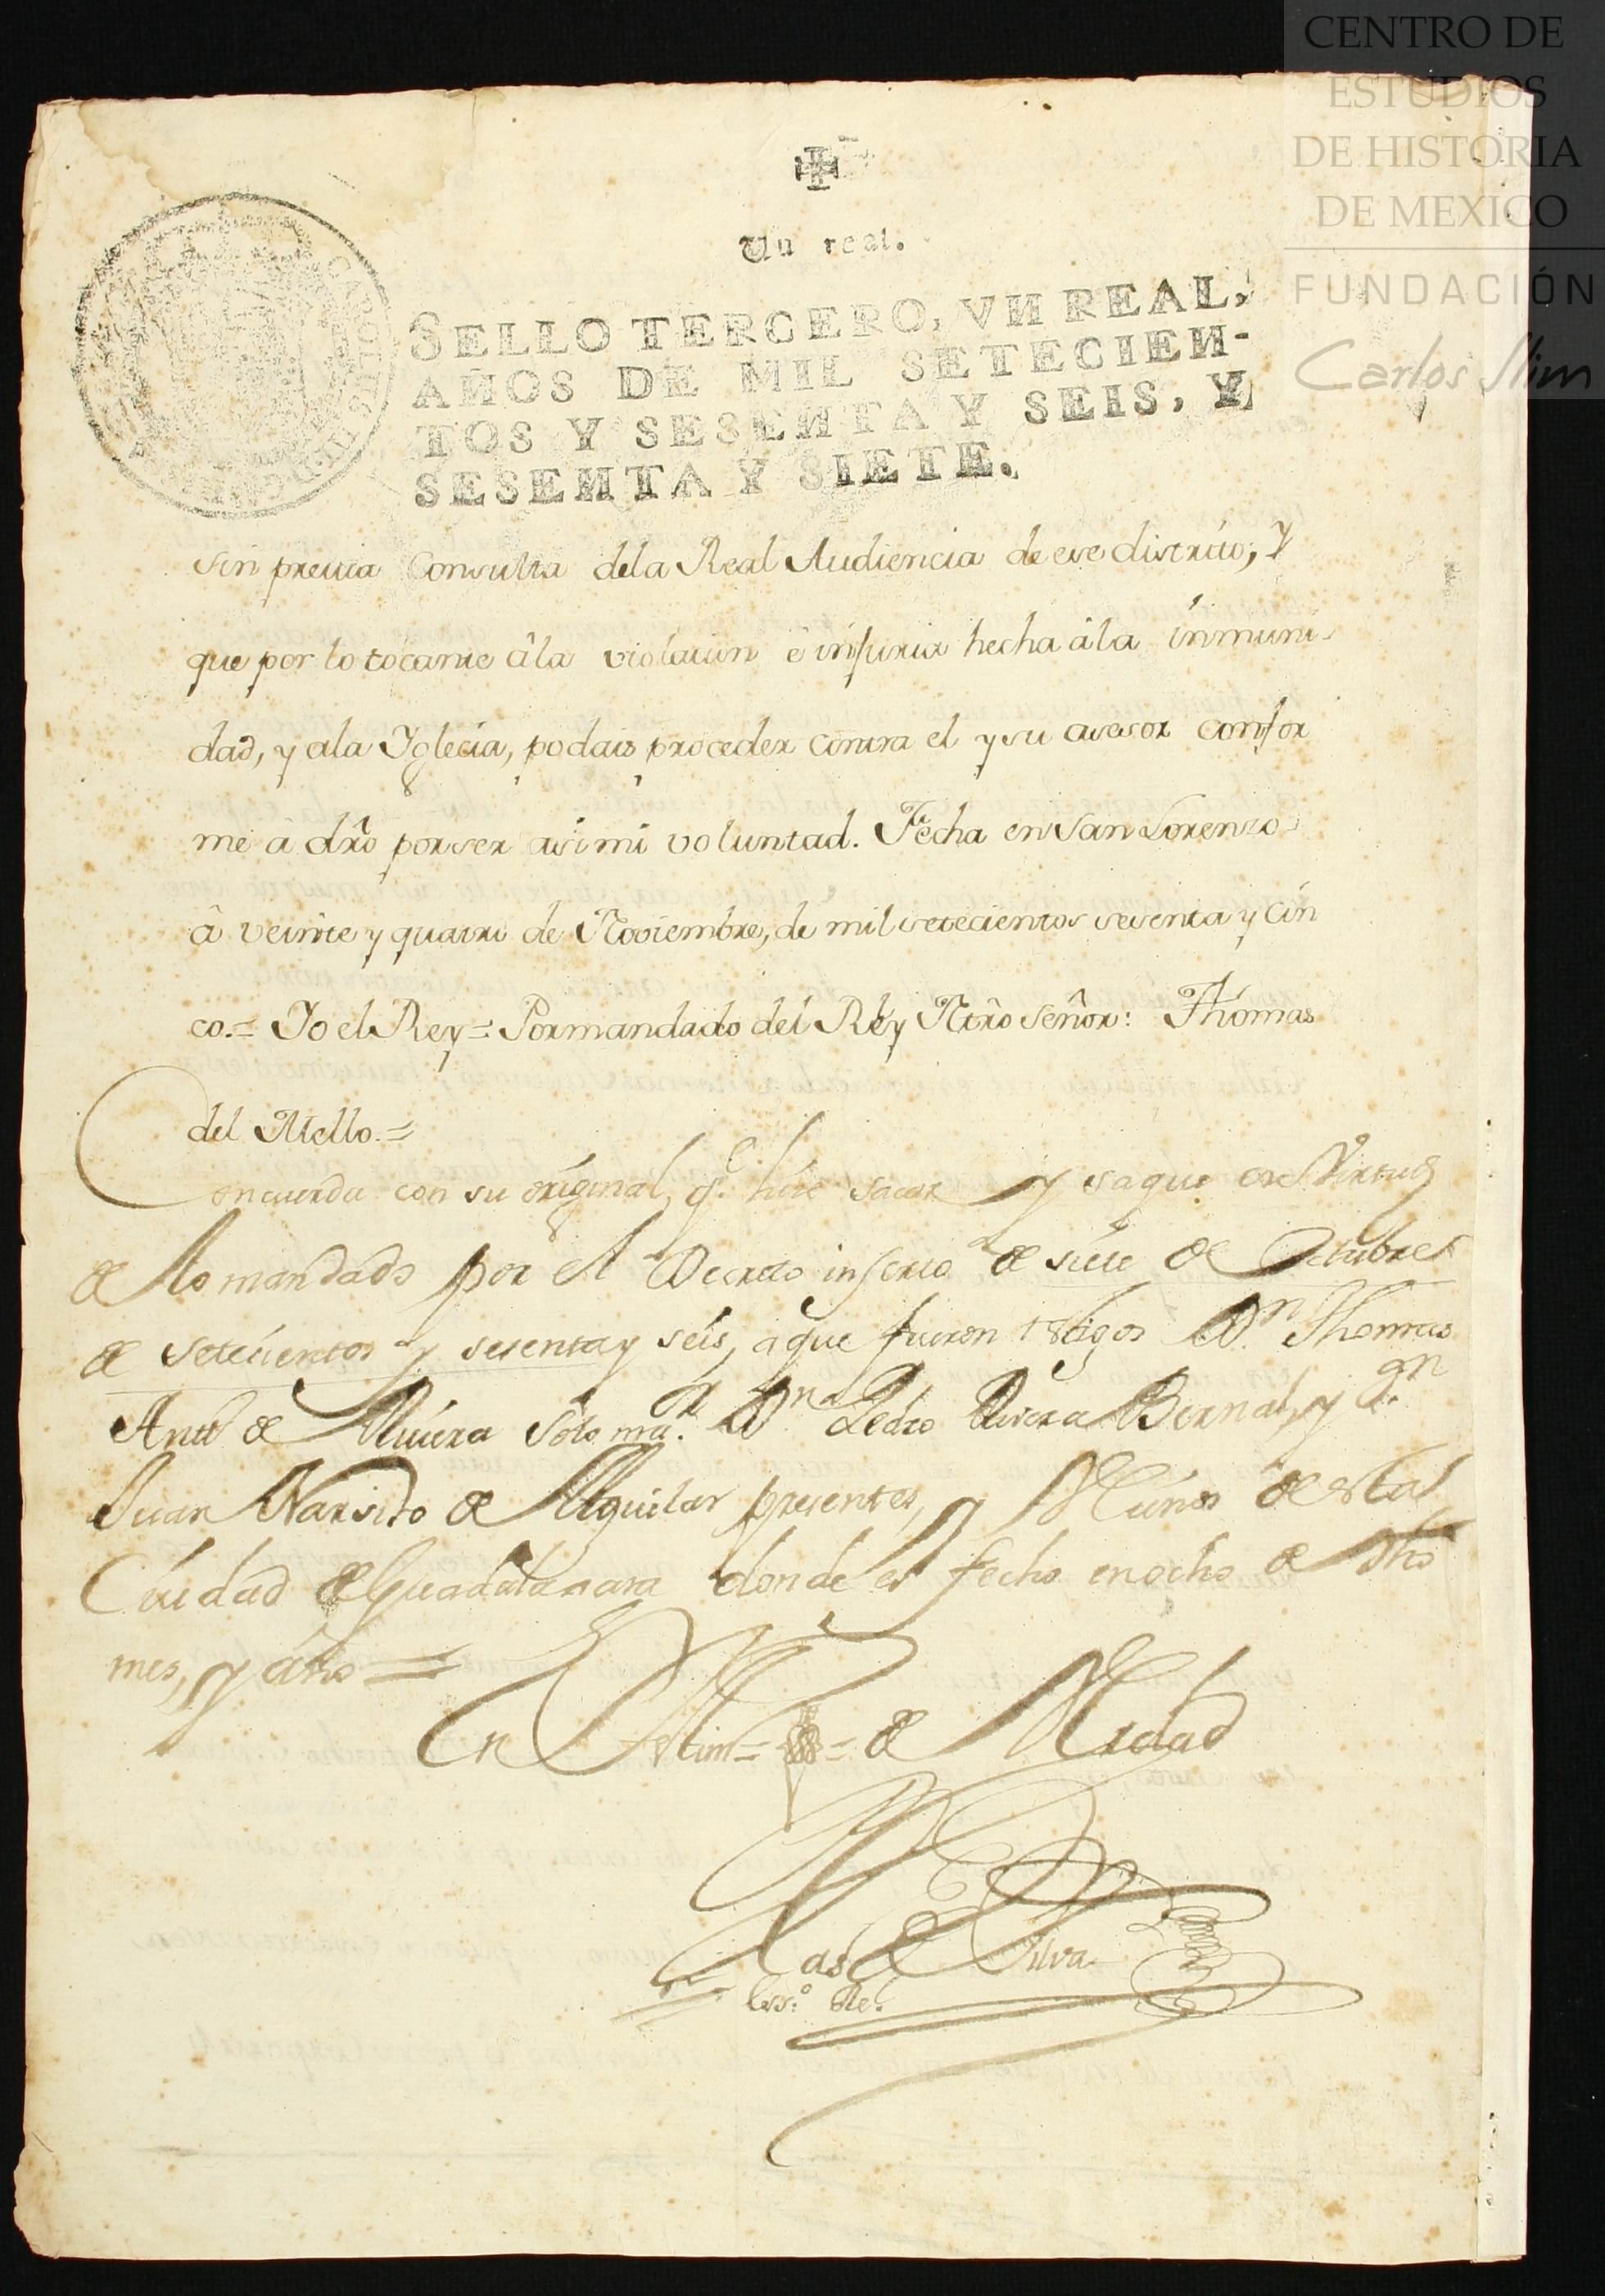 CENTRO DE
ESTUDIOS
DE HISTORIA
DE MEXICO
FUNDACIÓN
Carlos Slim
Un real.
SELLO TERCERO, VN REAL,
AÑOS DE MIL SETECIEN-
TOS Y SESENTA Y SEIS, Y
SESENTA Y SIETE.
sin previa Consulta dela Real Audiencia de ese distrito, Y
que por lo tocante âla violacion é injuria hecha âla inmuni-
dad, y ala Yglecia, podais proceder contra el y su asesor confor
me â dr̃o por ser asi mi voluntad. Fecha en San Lorenzo
â veinte y quatro de Noviembre, de mil setecientos sesenta y cin
co.= Yo el Rey = Por mandado del Rey Ntr̃o Señor: Thomas
del Mello.=
Concuerda con su original, q.e hise sacar y saque en Virtud
de lo mandado por el Decreto inserto de siete de Octubre
de setecientos y sesenta y seis, a que fueron testigos Dn. Thomas
Antt de Riviera Soto mar. Dn. Pedro Rivera Bernal, y Dn.
Juan Narsiso de Aguilar presentes, y Vecinos de esta
Ciudad de Guadalaxara donde es fecho en ocho de dho
mes, y año =
En Testim = = de Verdad
Blas de Silva
Ess.o Rl.